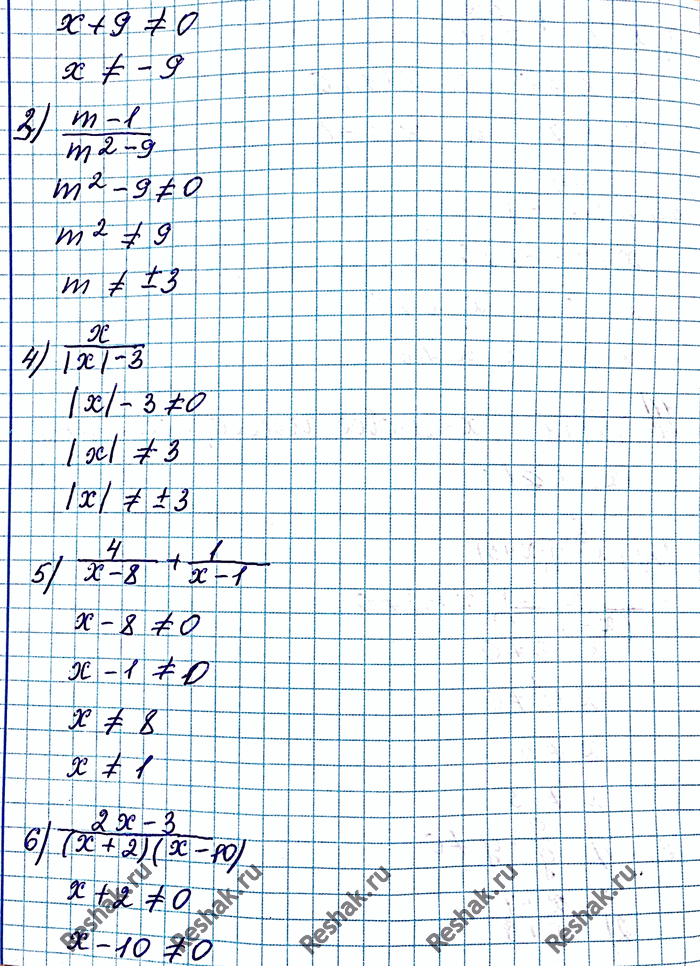 x + 9 ≠ 0
x ≠ - 9
3) m - 1 / m² - 9
m² - 9 ≠ 0
m² ≠ 9
m ≠ ±3
4) x / |x| - 3
|x| - 3 ≠ 0
|x| ≠ 3
|x| ≠ ±3
5) 4 / x - 8 + 1 / x - 1
x - 8 ≠ 0
x - 1 ≠ 0
x ≠ 8
x ≠ 1
6) 2x - 3 / (x + 2)(x - 10)
x + 2 ≠ 0
x - 10 ≠ 0
Reshak.ru Reshak.ru Reshak.ru Reshak.ru Reshak.ru